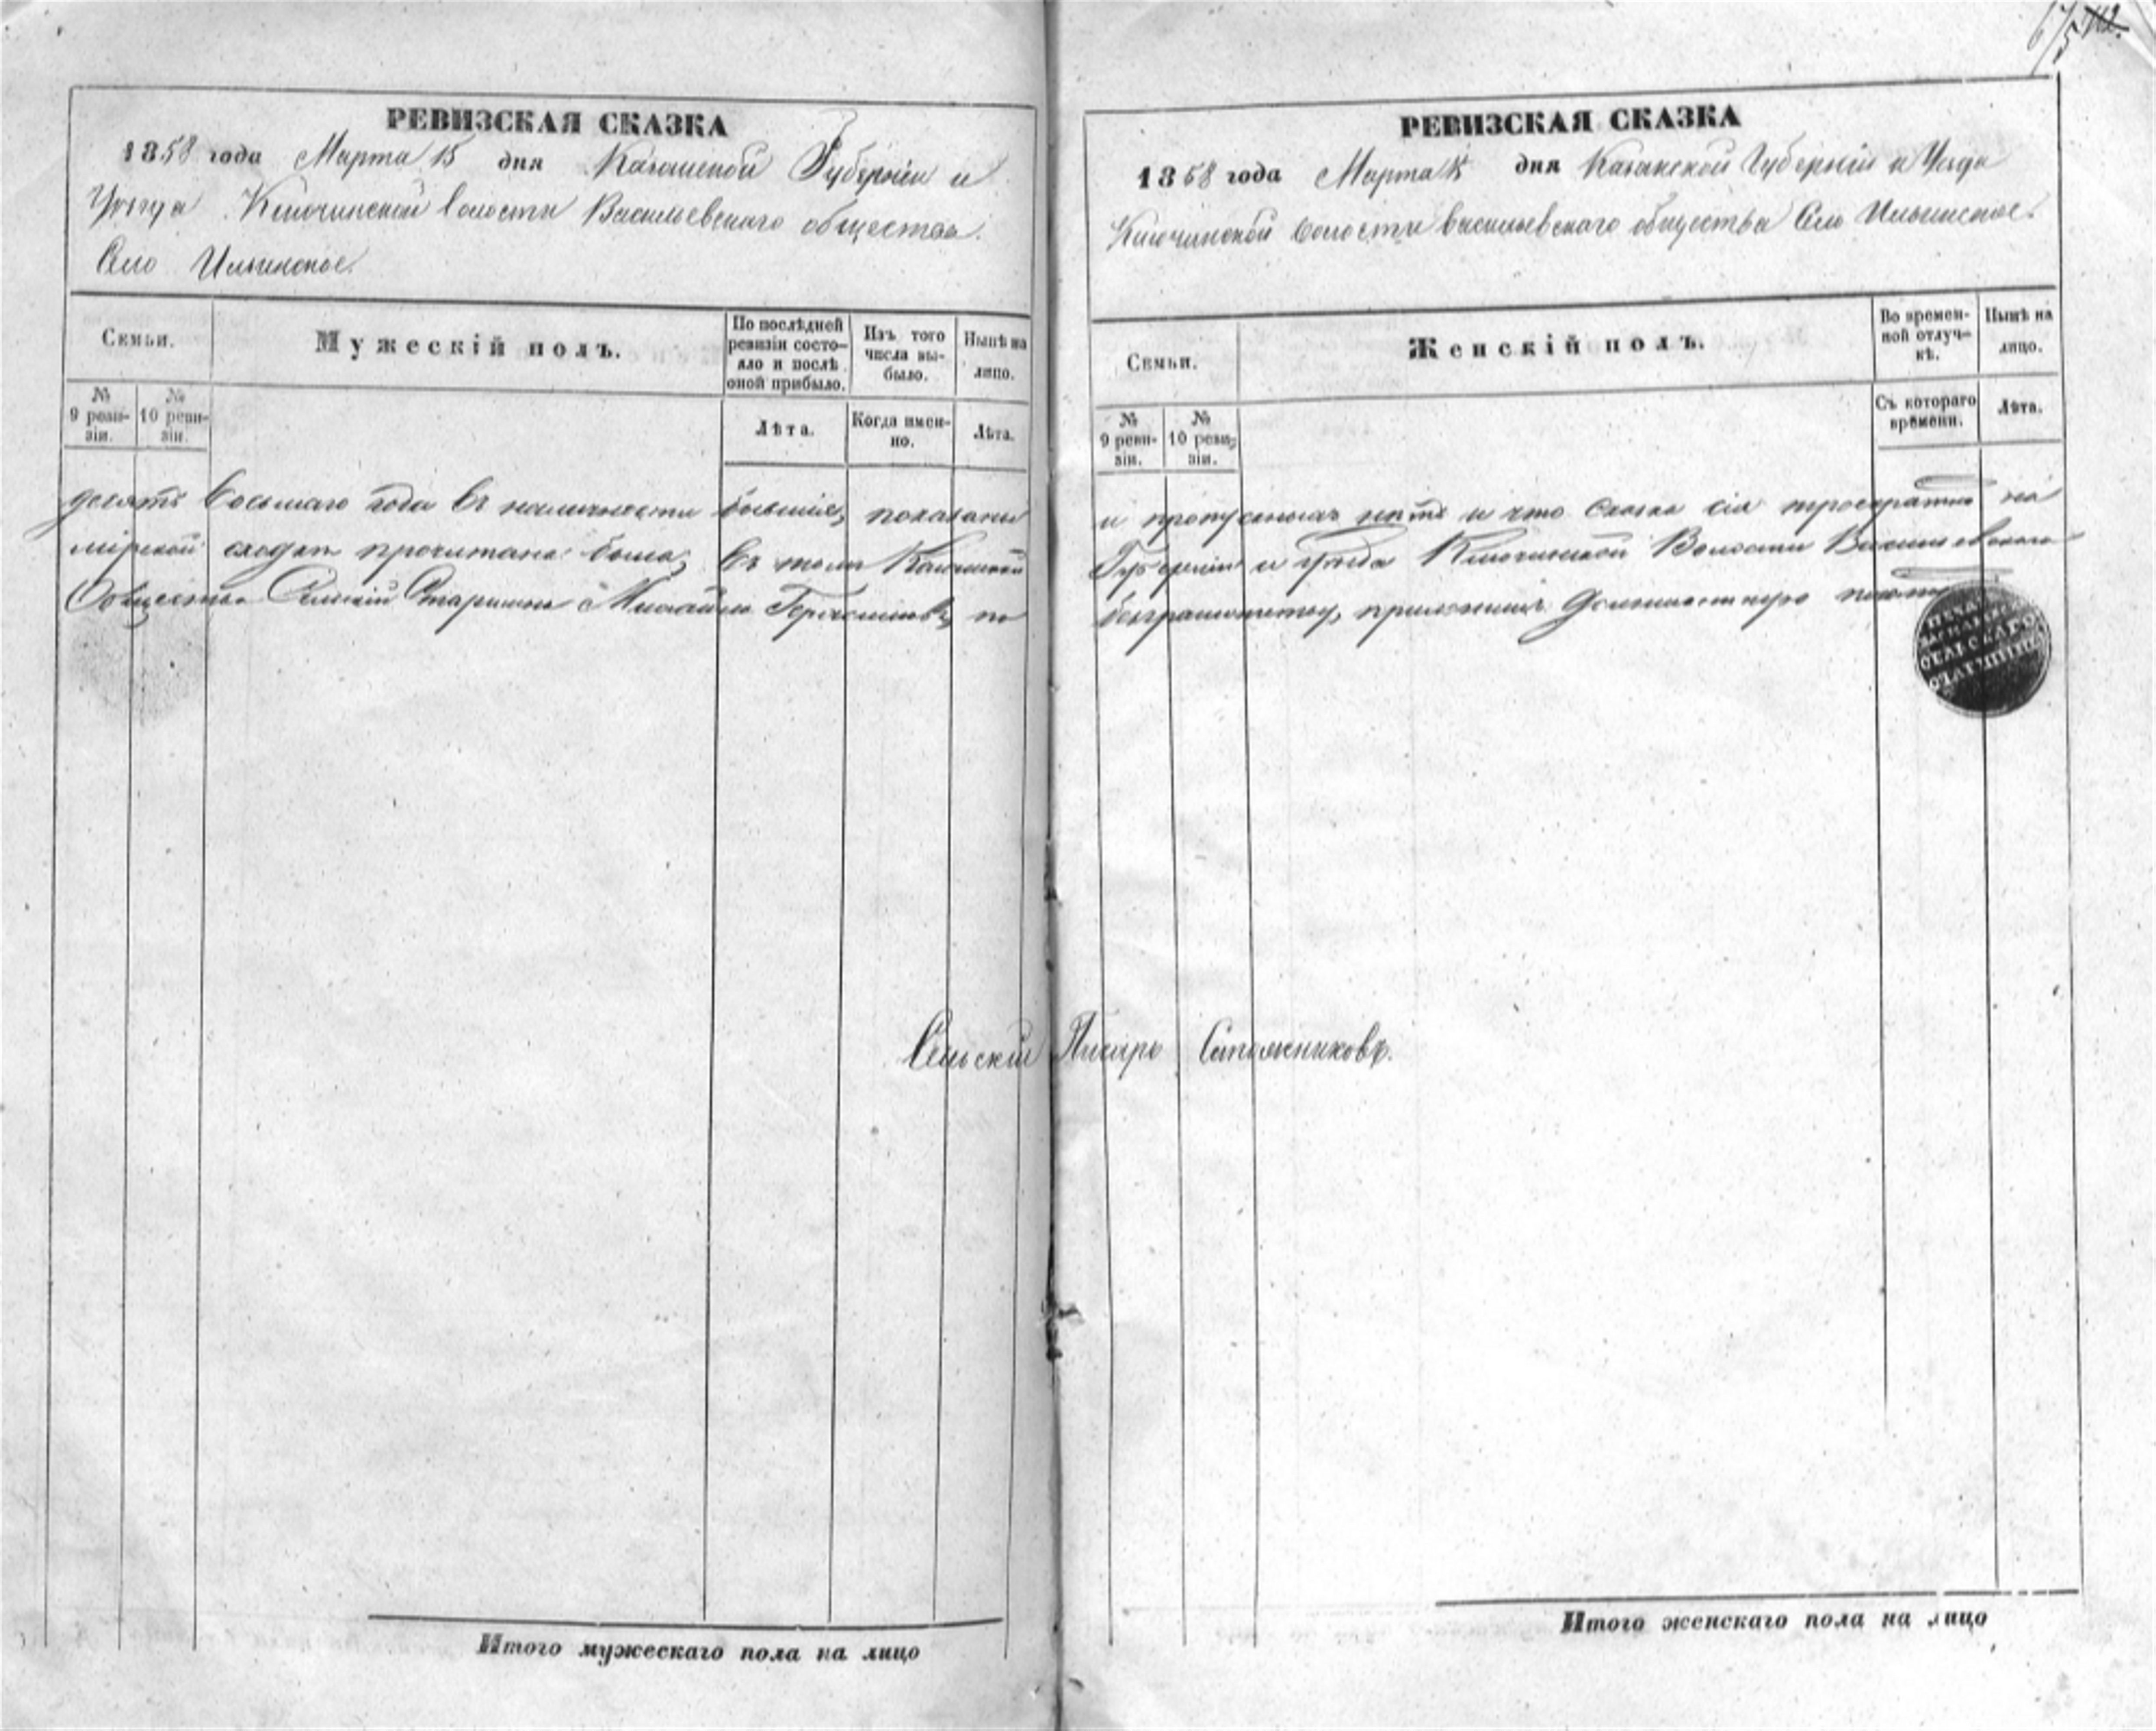 РЕВИЗСКАЯ СКАЗКА
1858 года Марта 15 дня Казанской Губернiи и
Уезда Ключинской волости Васильевскаго общества.
Село Ильинское.
Семьи.
Мужескiй полъ.
По послѣдней ревизiи состо-
яло и послѣ
оной прибыло.
Изъ того
числа вы-
было.
Нынѣ на
лицо.
№
9 реви-
зiи.
№
10 реви-
зiи.
Лѣта.
Когда имен-
но.
Лѣта.
десятъ восьмаго года въ наличности бывшiя, показаны
мiрской сходѣ прочитана была; въ томъ Казанской
Общества Сельскiй Старшина Михайло по
Сельскiй Писарь
Итого мужескаго пола на лицо
67/5
РЕВИЗСКАЯ СКАЗКА
1858 года Марта 15 дня Казанской Губернiи и Уезда
Ключинской волости Васильевскаго общества Село Ильинское.
Семьи.
Женскiй полъ.
Во времен-
ной отлуч-
кѣ.
Нынѣ на
лицо.
№
9 реви-
зiи.
№
10 реви-
зiи.
Съ котораго
времени.
Лѣта.
и пропускныхъ нѣтъ и что сказка сiя троекратно на
Губернiи и уѣзда Ключинской Волости Васильевскаго
безграмотству, приложилъ должностную печать
ПЕЧАТЬ
СЕЛЬСКАГО
СТАРШИНЫ
Итого женскаго пола на лицо